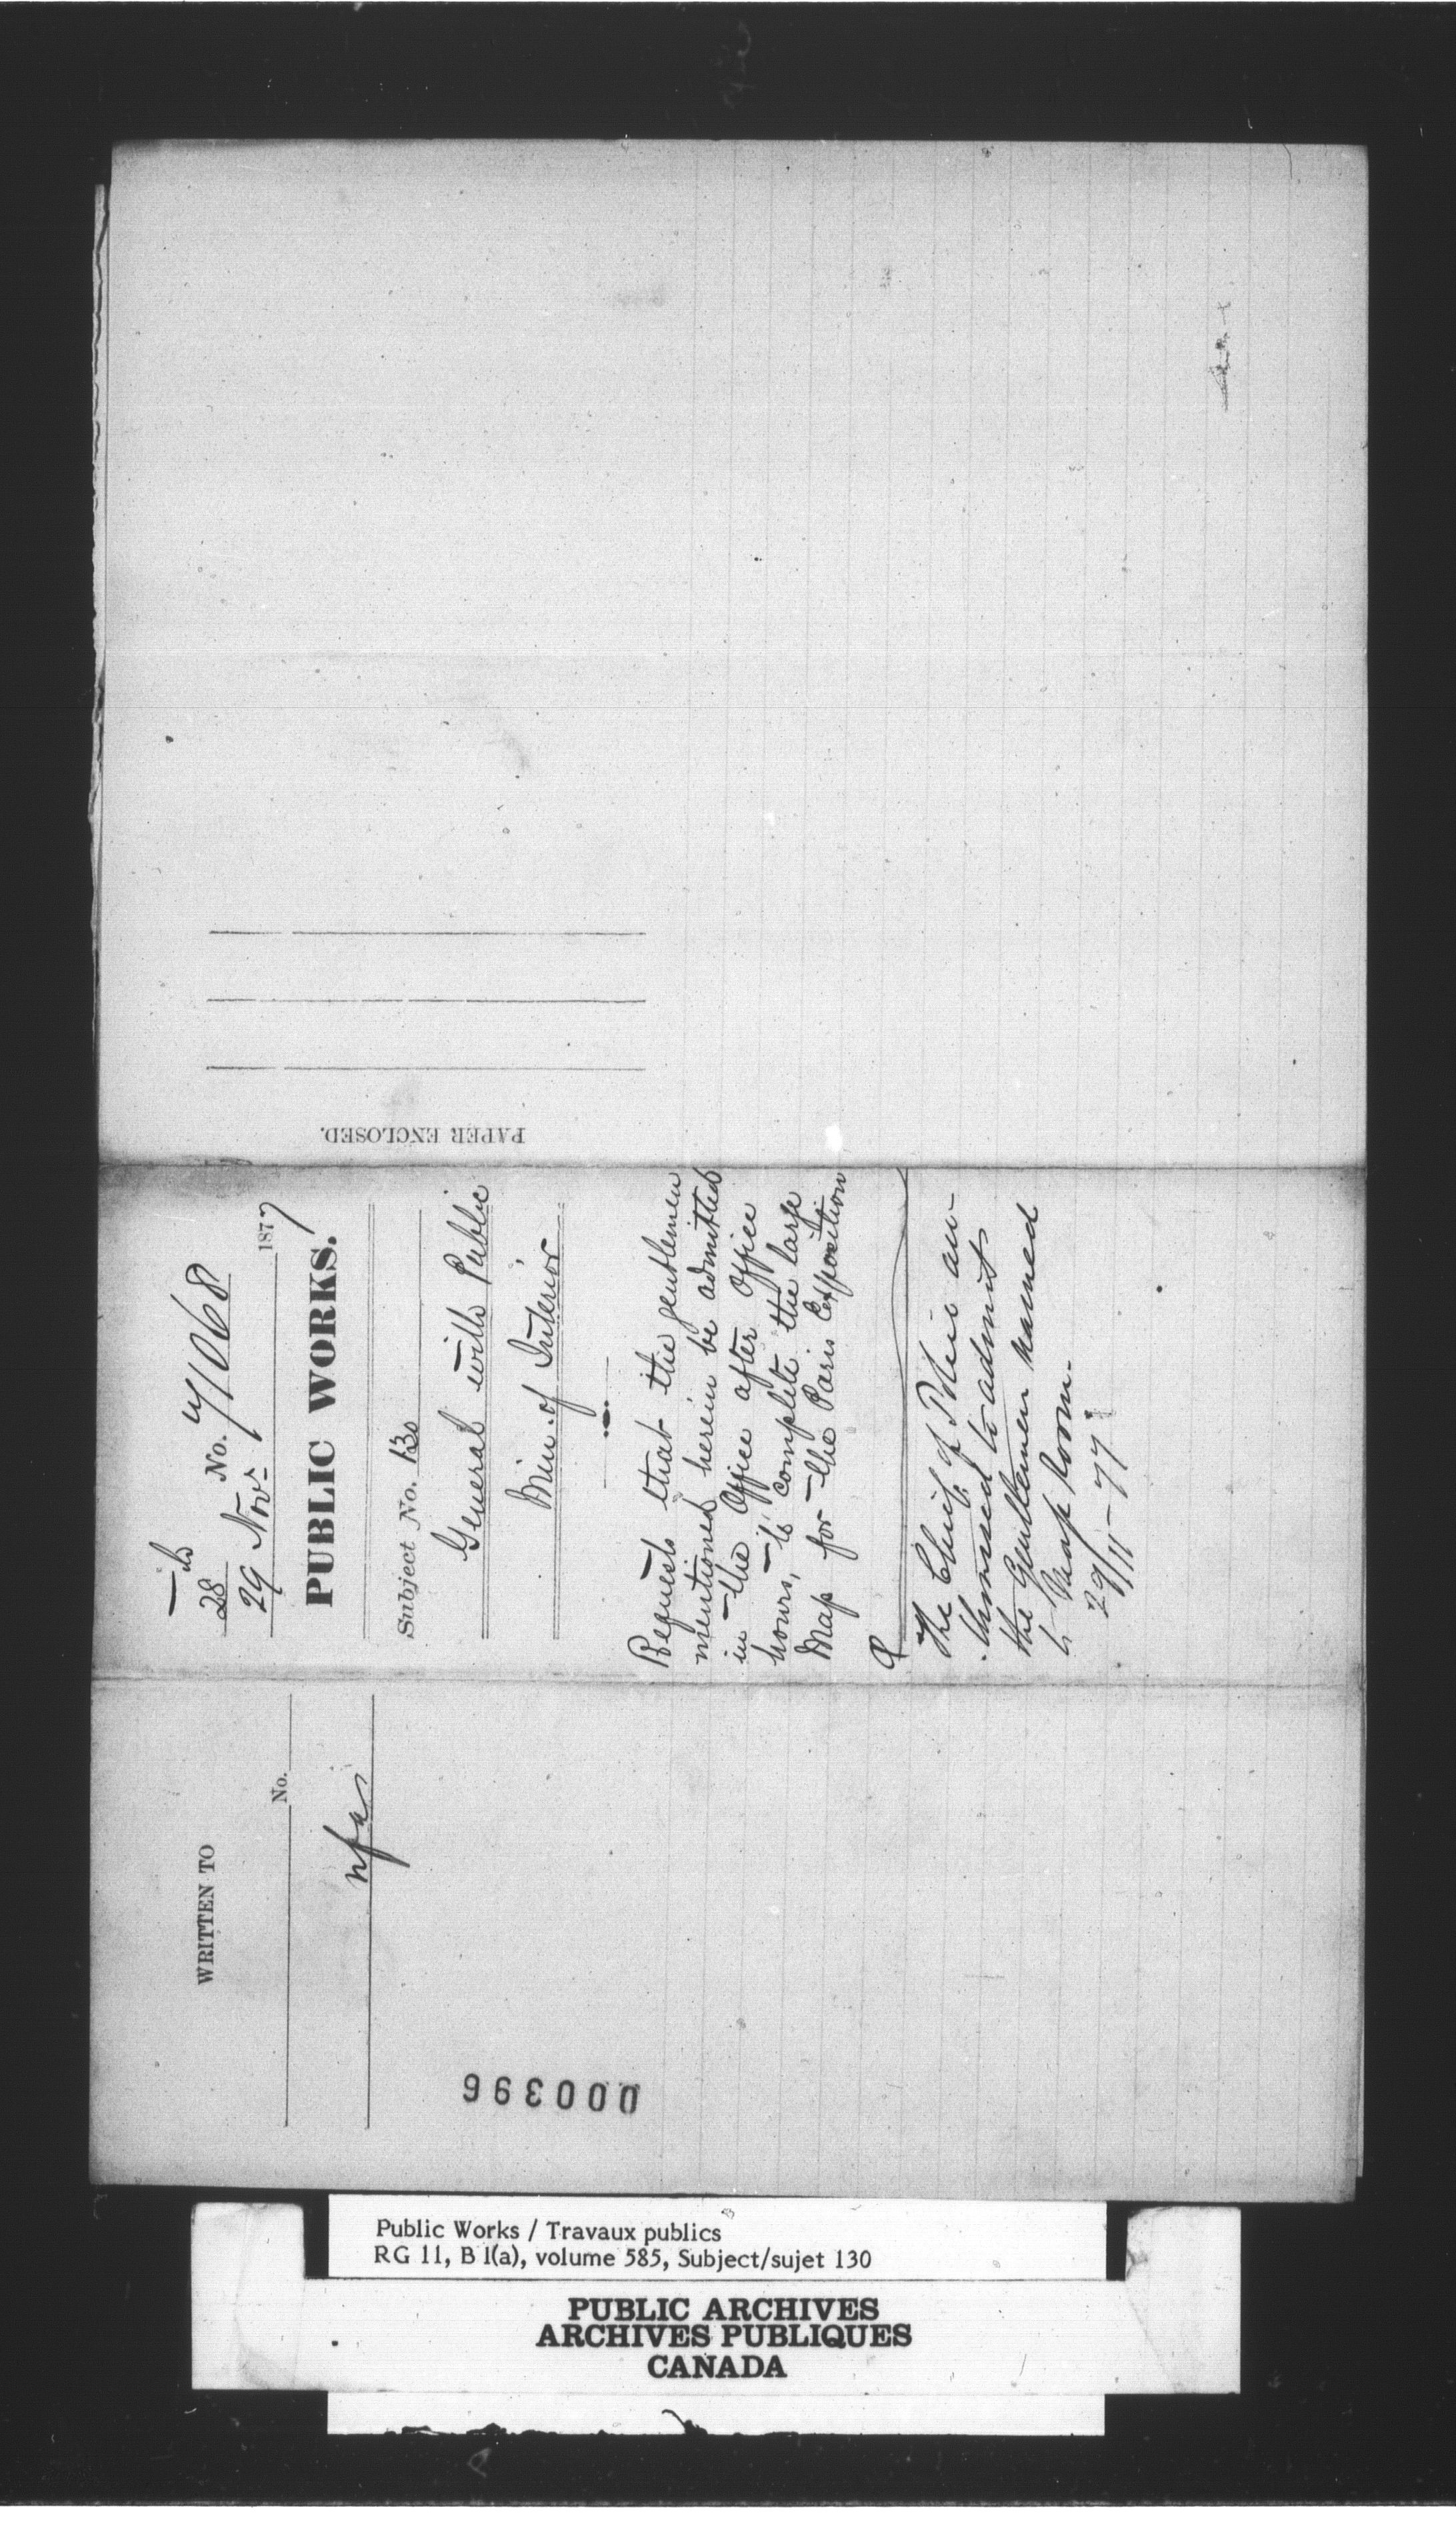 PAPER ENCLOSED.
28
No. 71068
29 Nov 1877
PUBLIC WORKS.
Subject No. 130
General with Public
Min. of Interior
Requests that the gentlemen
mentioned herein be admitted
in the Office after Office
hours, to complete the large
Map for the Paris Exposition
The Chief of Police au-
thorised to admit
the Gentlemen named
to Map Room.
29/11-77
WRITTEN TO
No.
nfa
000396
Public Works / Travaux publics
RG 11, B 1(a), volume 585, Subject/sujet 130
PUBLIC ARCHIVES
ARCHIVES PUBLIQUES
CANADA